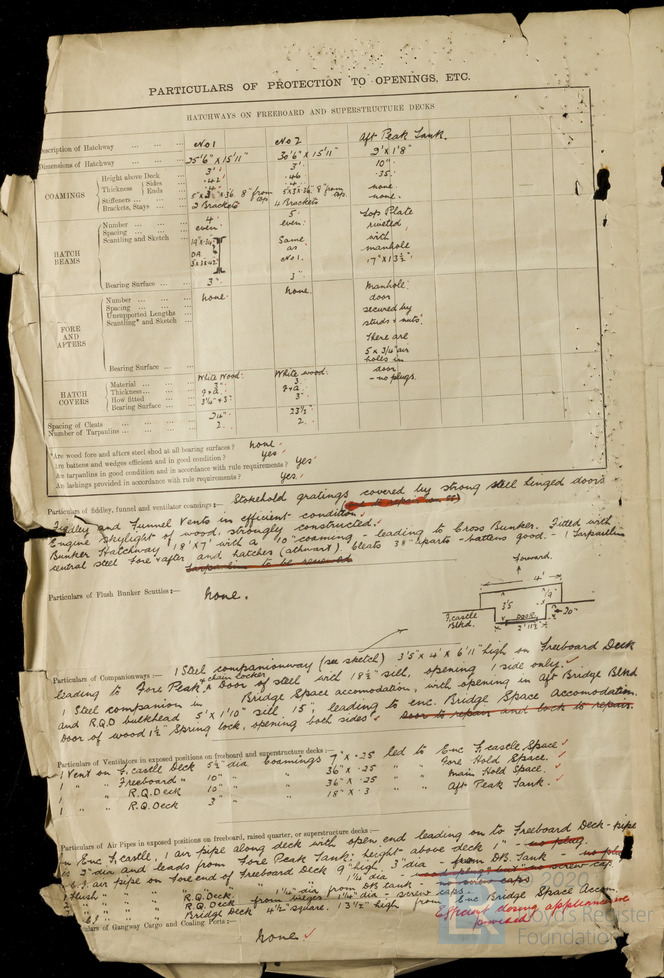 PARTICULARS OF PROTECTION TO OPENINGS, ETC.
HATCHWAYS ON FREEBOARD AND SUPERSTRUCTURE DECKS
Description of Hatchway No 1 No 2 Aft Peak Tank.
Dimensions of Hatchway 25'6" x 15'11" 30'6" x 15'11" 2' x 1'8"
COAMINGS
Height above Deck 3' 3' 10"
Thickness Sides .42 .46 .35
Ends .4 .4 none
Stiffeners 8" from top. 5x3x.36 8" from top. none.
Brackets, Stays 2 Brackets 4 Brackets
HATCH BEAMS
Number 4 5 Top Plate
Spacing even. even. riveted,
Scantling and Sketch Same as No 1. with manhole 17" x 13½"
Bearing Surface 3" 3"
FORE AND AFTERS
Number none. none. Manhole
Spacing door
Unsupported Lengths secured by
Scantling* and Sketch studs & nuts.
There are
5 x 3/4" air
holes in
Bearing Surface door
HATCH COVERS
Material White Wood. White wood. - no plugs.
Thickness 3" 3
How fitted F & A F & A
Bearing Surface 3¼" & 3" 3"
Spacing of Cleats 24" 23½"
Number of Tarpaulins 2. 2.
*Are wood fore and afters steel shod at all bearing surfaces? none.
Are battens and wedges efficient and in good condition? yes
Are tarpaulins in good condition and in accordance with rule requirements? yes
Are lashings provided in accordance with rule requirements? yes.
Particulars of fiddley, funnel and ventilator coamings:— Stokehold gratings covered by strong steel hinged doors
Fiddley and Funnel Vents in efficient condition.
Engine skylight of wood, strongly constructed.
Bunker Hatchway 18' x 7' with a 10" coaming - leading to Cross Bunker. Fitted with
central steel fore & after and hatches (athwart). Cleats 38" aparts - battens good. - 1 Tarpaulin
Tarpaulin to be renewed
Particulars of Flush Bunker Scuttles:— None.
Forward.
4'
3'5
DOOR
20"
F.castle Blkd.
Particulars of Companionways:— 1 Steel companionway (see sketch) 3'5" x 4' x 6'11" high on Freeboard Deck
leading to Fore Peak & chain locker Door of steel with 18½" sill, opening 1 side only.
1 Steel companion in Bridge Space accomodation, with opening in aft Bridge Blkd
and R.Q.D bulkhead 5' x 1'10" sill 15", leading to enc. Bridge Space Accomodation.
Door of wood 1½" Spring lock, opening both sides. Door to repair and lock to repair.
Particulars of Ventilators in exposed positions on freeboard and superstructure decks:—
1 Vent on F.castle Deck 5½" dia Coamings 7" x .25 led to Enc F.castle Space
1 " " Freeboard " 10" " " 36" x .25 " " Fore Hold Space.
1 " " R.Q.Deck 10" " " 36" x .25 " " Main Hold Space.
1 " " R.Q.Deck 3" " " 18" x .3 " " Aft Peak Tank.
Particulars of Air Pipes in exposed positions on freeboard, raised quarter, or superstructure decks:—
In Enc F.castle, 1 air pipe along deck with open end leading on to Freeboard Deck - pipe
is 3" dia and leads from Fore Peak Tank; height above deck 1" - no plug.
air pipe on fore end of Freeboard Deck 9" high, 3" dia - from DB. Tank - no plug
1 Flush " " R.Q.Deck. 1¼" dia from DB tank - no screw caps
" " " R.Q.Deck from bilges 1¼" dia - screw caps.
" " Bridge Deck 4½" square. 13½" high from Enc Bridge Space Accom.
Efficient closing appliances provided
Particulars of Gangway Cargo and Coaling Ports:— None.
2020
Lloyd's Register
Foundation